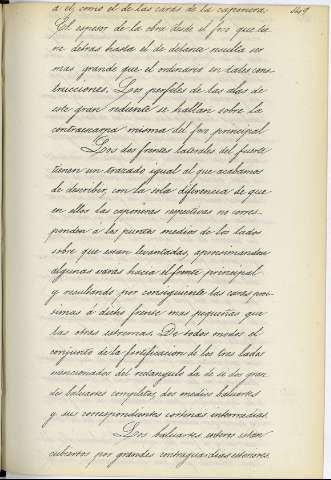 a el como el de las caras de la caponera.
549
El espesor de la obra desde el foso que tie
ne detras hasta el de delante resulta ser
mas grande que el ordinario en tales cons
trucciones. Los perfiles de las alas de
este gran rediente se hallan sobre la
contraescarpa misma del foso principal
Los dos frentes laterales del fuerte
tienen un trazado igual al que acabamos
de describir, con la sola diferencia de que
en ellos las caponeras respectivas no corres
ponden á los puntos medios de los lados
sobre que estan levantadas, aproximandose
algunas varas hacia el frente principal
y resultando por consiguiente las caras pró
simas á dicho frente mas pequeñas que
las otras estremas. De todos modos el
conjunto de la fortificacion de los tres lados
mencionados del rectangulo da de si dos gran
des baluartes completos, dos medios baluartes
y sus correspondientes cortinas intermedias.
Los baluartes enteros estan
cubiertos por grandes contraguardias esteriores.